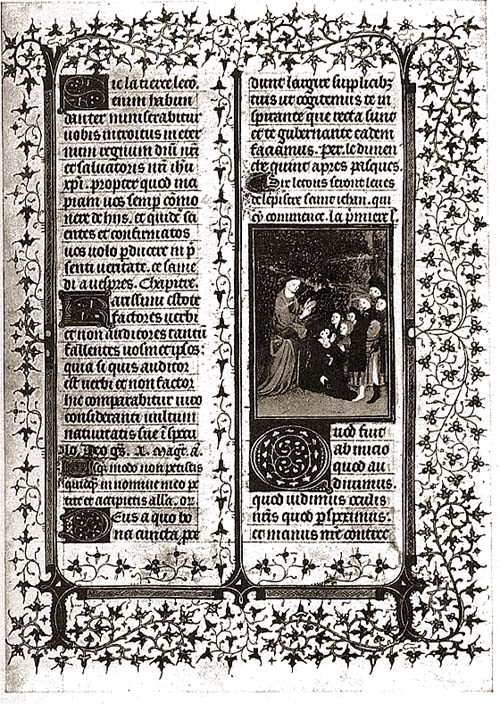 Sic la tierce leco
enim habun
danter ministrabitur
uobis introitus in eter
num regnum dni nri
et saluatoris nri ihu
xpi. propter quod inci
piam uos semp como
nere de hijs. et quide sci
entes et confirmatos
uos uolo pducere in p
senti ueritate. ce same
di a uespres. Chapitre.
Karissimi estote
factores uerbi
et non auditores tantu
fallentes uosmetipsos:
quia si quis auditor
est uerbi et non factor
hic comparabitur uiro
consideranti uultum
natiuitatis sue i specu
lo. Deo gs. Magt. a.
Usq modo non petistis
quicq in nomine meo pe
tite et accipietis alla. or.
Deus a quo bo
na cuncta pro
dunt largire supplicibz
tuis ut cogitemus te in
spirante que recta sunt
et te gubernante eadem
faciamus. Per. le dimen
che quint apres pasques.
Ces lecons seront leues
de lepistre saint iehan. qui
cy commence. la pmiere l.
Quod fuit
ab inicio
quod au
diuimus.
quod uidimus oculis
nris quod pspeximus.
et manus nre contrec